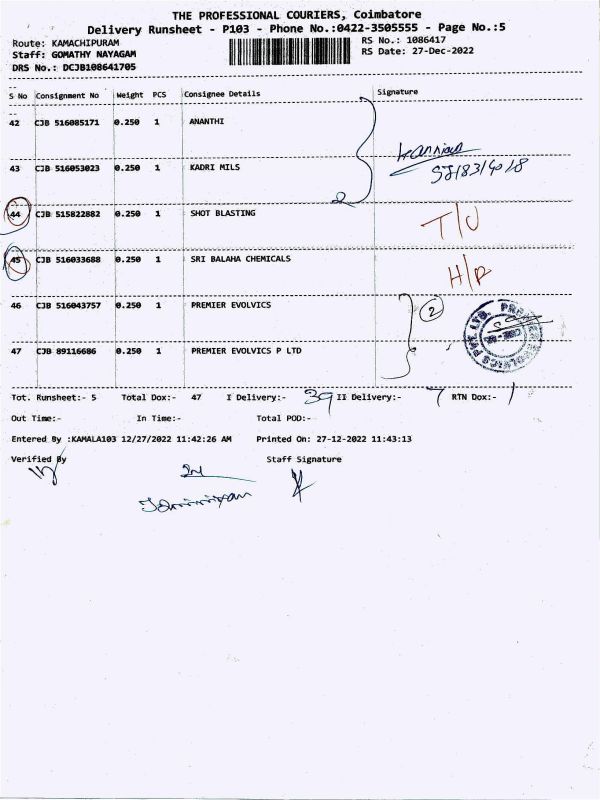 THE PROFESSIONAL COURIERS, Coimbatore
Delivery Runsheet - P103 - Phone No.:0422-3505555 - Page No.:5
Route: KAMACHIPURAM RS No.: 1086417
Staff: GOMATHY NAYAGAM RS Date: 27-Dec-2022
DRS No.: DCJB108641705
S No Consignment No Weight PCS Consignee Details Signature
42 CJB 516085171 0.250 1 ANANTHI
43 CJB 516053023 0.250 1 KADRI MILS
2
44 CJB 515822882 0.250 1 SHOT BLASTING T/U
45 CJB 516033688 0.250 1 SRI BALAHA CHEMICALS H/P
46 CJB 516043757 0.250 1 PREMIER EVOLVICS 2
47 CJB 89116686 0.250 1 PREMIER EVOLVICS P LTD
Tot. Runsheet:- 5 Total Dox:- 47 I Delivery:- 39 II Delivery:- 7 RTN Dox:- 1
Out Time:- In Time:- Total POD:-
Entered By :KAMALA103 12/27/2022 11:42:26 AM Printed On: 27-12-2022 11:43:13
Verified By Staff Signature